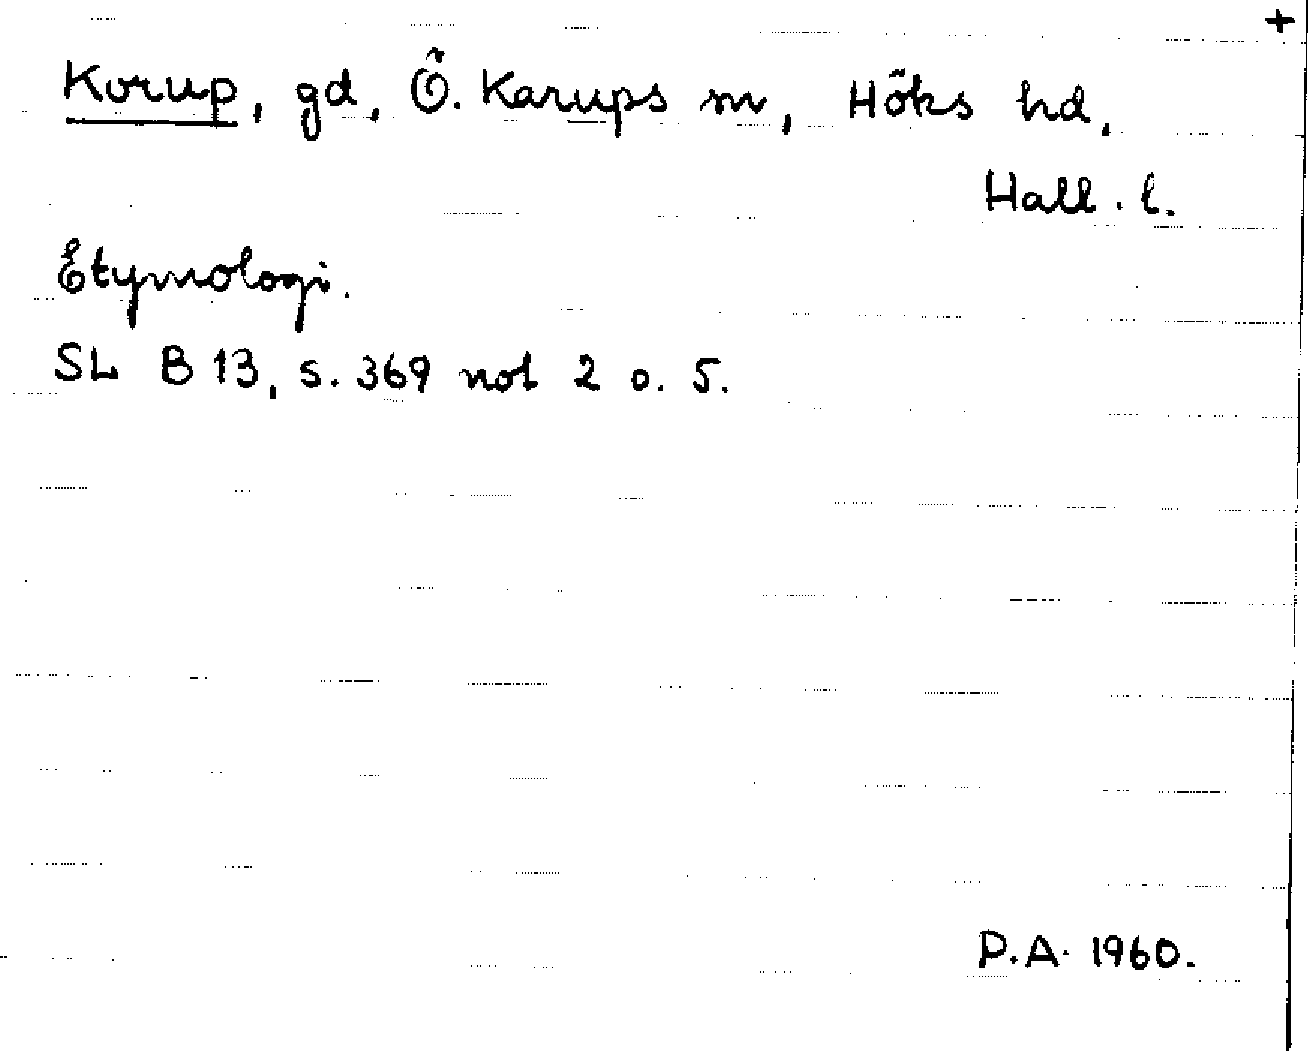 +
Korup, gd, Ö. Karups sn, Höks hd,
Hall. l.
Etymologi.
SL B 13, s. 369 not 2 o. 5.
P.A. 1960.